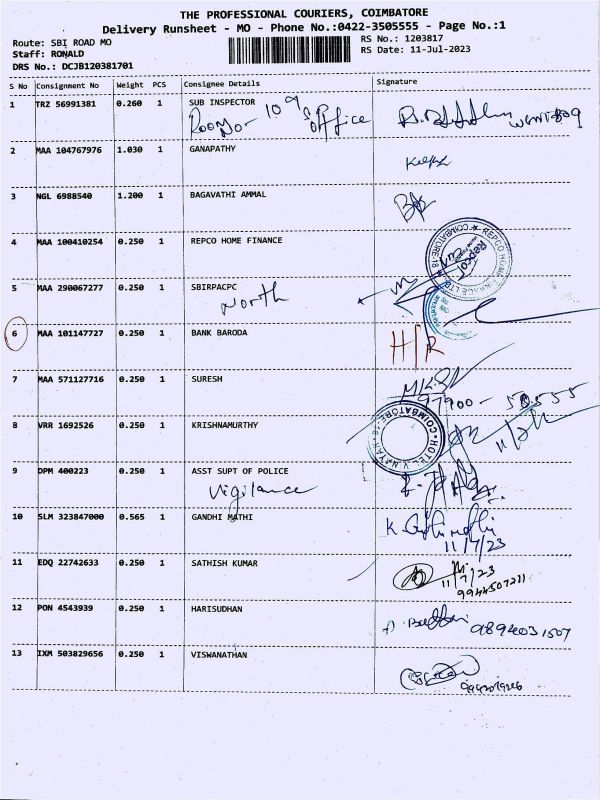 THE PROFESSIONAL COURIERS, COIMBATORE
Delivery Runsheet - MO - Phone No.:0422-3505555 - Page No.:1
Route: SBI ROAD MO
RS No.: 1203817
Staff: RONALD
RS Date: 11-Jul-2023
DRS No.: DCJB120381701
S No Consignment No Weight PCS Consignee Details Signature
1 TRZ 56991381 0.260 1 SUB INSPECTOR
office
2 MAA 104767976 1.030 1 GANAPATHY
3 NGL 6988540 1.200 1 BAGAVATHI AMMAL
4 MAA 100410254 0.250 1 REPCO HOME FINANCE
REPCO HOME FINANCE LTD COIMBATORE-18
5 MAA 290067277 0.250 1 SBIRPACPC
North
6 MAA 101147727 0.250 1 BANK BARODA
H/R
7 MAA 571127716 0.250 1 SURESH
97900 - 50555
8 VRR 1692526 0.250 1 KRISHNAMURTHY
HOTEL VINAYAK COIMBATORE
9 DPM 400223 0.250 1 ASST SUPT OF POLICE
Vigilance
10 SLM 323847000 0.565 1 GANDHI MATHI
11/7/23
11 EDQ 22742633 0.250 1 SATHISH KUMAR
11/7/23
9944507211
12 PON 4543939 0.250 1 HARISUDHAN
9894031507
13 IXM 503829656 0.250 1 VISWANATHAN